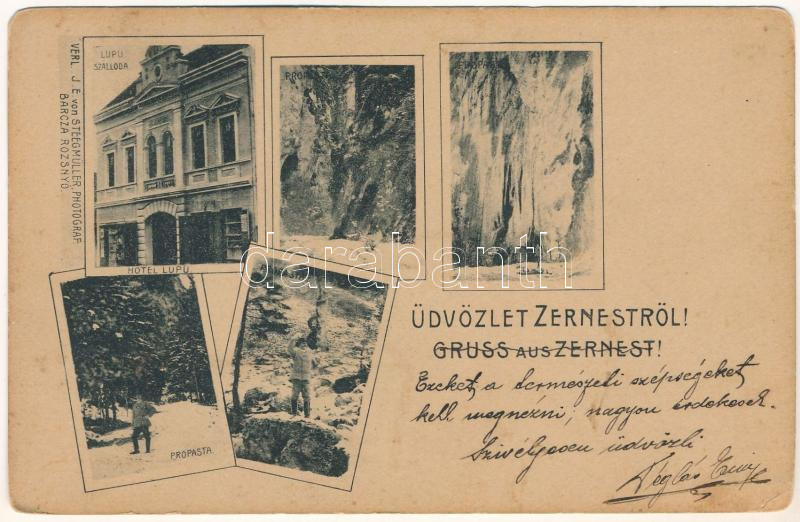 VERL. J. E. von STEEGMÜLLER, PHOTOGRAF
BARCZA ROZSNYÓ.
LUPU
SZÁLLODA
HOTEL LUPU
PROPASTA
PROPASTA
PROPASTA.
darabanth
ÜDVÖZLET ZERNESTRÖL!
GRUSS AUS ZERNEST!
Ezeket a természeti szépségeket
kell megnézni, nagyon érdekesek.
Szivélyesen üdvözli
Téglás